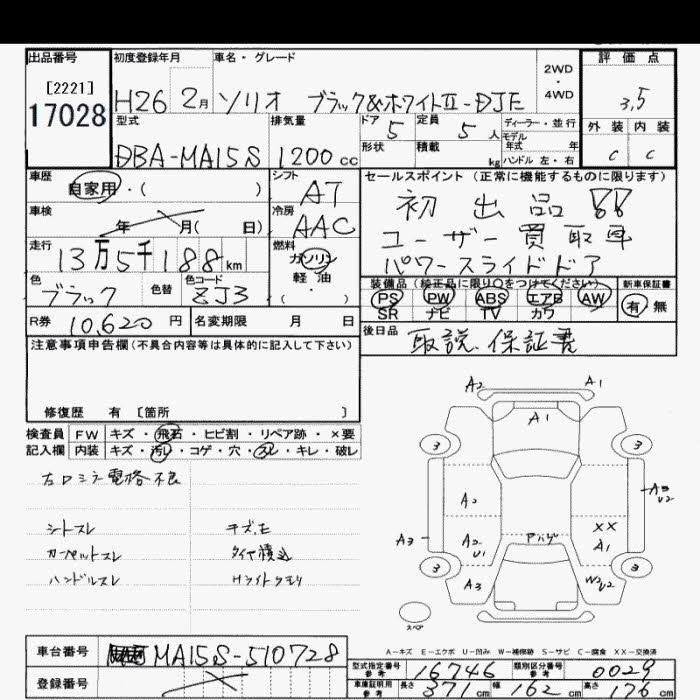 出品番号
[2221]
17028
初度登録年月
H26 2月
車名・グレード
ソリオ ブラック&ホワイトⅡ-DJE
2WD
・
4WD
評価点
3,5
外装 内装
C C
型式
DBA-MA15S
排気量
1200 cc
ドア 5
定員 5 人
形状
積載 kg
ディーラー・並行
モデル
年式 年
ハンドル 左・右
車歴
自家用・( )
シフト
AT
車検
年 月( 日)
冷房
AAC
走行
13万5千188km
燃料
ガソリン
軽油
( ・ )
色
ブラック
色替
色コード
ZJ3
R券 10,620 円
名変期限 月 日
セールスポイント(正常に機能するものに限ります)
初出品!!
ユーザー買取車
パワースライドドア
装備品(純正品に限り○をつけてください)
PS PW ABS エアB AW
SR ナビ TV カワ
新車保証書
有・無
後日品
取説、保証書
注意事項申告欄(不具合内容等は具体的に記入して下さい)
修復歴 有 [箇所 ]
検査員 FW キズ・飛石・ヒビ割・リペア跡・×要
記入欄 内装 キズ・汚レ・コゲ・穴・スレ・キレ・破レ
左ロミラ電格不良
シートスレ
カーペットスレ
ハンドルスレ
キズ、モ
タイヤ積込
Hライトクモリ
A2 A1
A1
3 3
A2
A3 U2
A3
A2 U1
アハゲ
XX
A1
3 3
A3
W2 U2
スペア
A-キズ E-エクボ U-凹み W-補修跡 S-サビ C-腐食 XX-交換済
車台番号
MA15S-510728
登録番号
型式指定番号
参考
16746
類別区分番号
参考
0029
車庫証明用
参考
長さ 371cm 幅 162cm 高さ 76cm